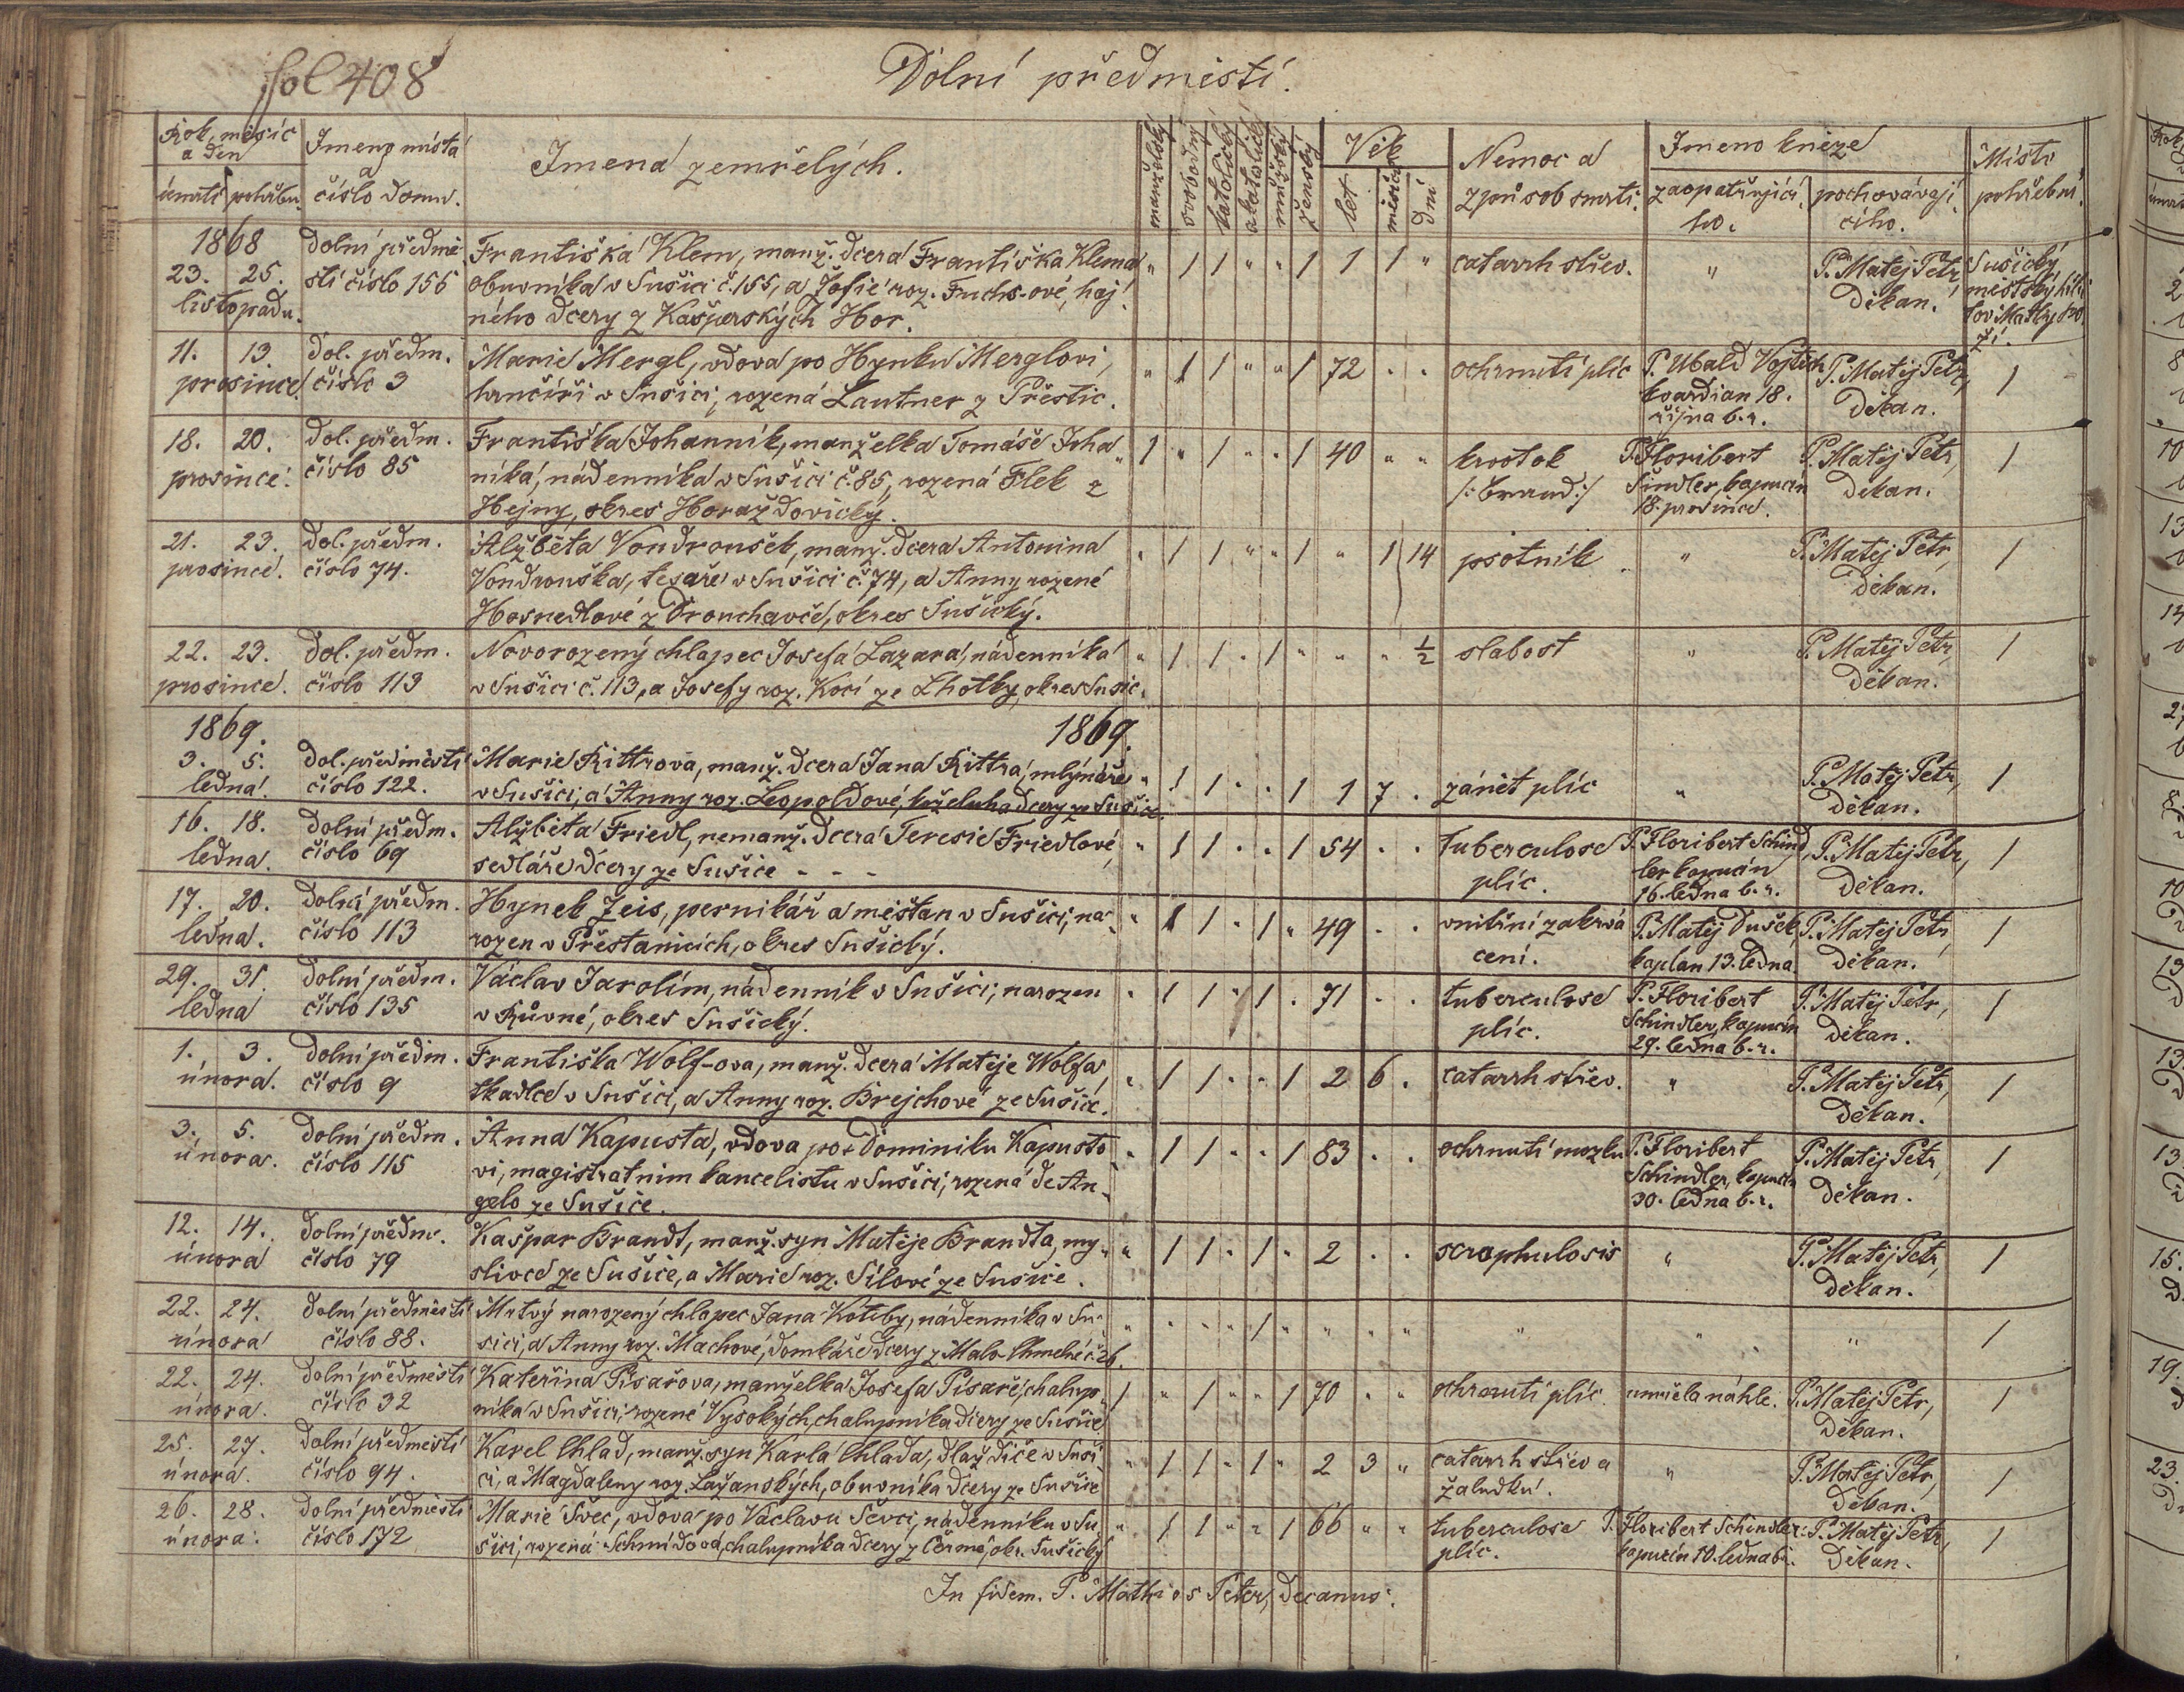 fol 408
Dolní předmistí.
Rok, měsíc a den
úmrtí pohřbu.
Jmeno místa a číslo domu.
Jmena zemřelých.
manželský
svobodný
katolický
akatolický
mužský
ženský
Věk
let
měsíců
dní
Nemoc a způsob smrti.
Jmeno kněze
zaopatřujícího.
pochovávajícího.
Místo pohřební.
1868
23. 25. listopadu.
dolní předměstí číslo 155
Františka Klem, manž. dcera Františka Klema
obuvníka v Sušici č. 155, a Žofie roz. Fuchs-ové, haj-
ného dcery z Kašperských Hor.
" 1 1 " " 1 1 1 "
catarrh střev.
"
P. Matěj Petr, Děkan.
Sušický městský hřbitov Matky Boží.
11. 13. prosince.
dol. předm. číslo 3
Marie Mergl, vdova po Hynku Merglovi,
hrnčíři v Sušici, rozená Lautner z Přestic.
" 1 1 " " 1 72 . .
ochrnutí plic
P. Ubald Vojtěch kvardian 18. října b.r.
P. Matěj Petr, Děkan.
1
18. 20. prosince.
dol. předm. číslo 85
Františka Johanník, manželka Tomáše Joha-
níka, nádenníka v Sušici č. 85, rozená Flek z
Hejny, okres Horažďovický.
1 " 1 " " 1 40 " "
krvotok /:brand:/
P. Floribert Šindler, kapucín 18. prosince.
P. Matěj Petr, děkan.
1
21. 23. prosince.
dol. předm. číslo 74.
Alžběta Vondroušek, manž. dcera Antonína
Vondrouška, tesaře v Sušici č. 74, a Anny rozené
Hosnedlové z Drouhavče, okres Sušický.
" 1 1 " " 1 " 1 14
psotník
"
P. Matěj Petr, Děkan.
1
22. 23. prosince.
dol. předm. číslo 113
Novorozený chlapec Josefa Lazara, nádenníka
v Sušici č. 113, a Josefy roz. Kocí ze Lhotky, okres Sušic.
" 1 1 . 1 " " " 1/2
slabost
"
P. Matěj Petr, Děkan.
1
1869.
1869.
3. 5. ledna.
dol. předměstí číslo 122.
Marie Rittrova, manž. dcera Jana Rittra, mlynáře
v Sušici, a Anny roz. Leopoldové, koželuha dcery ze Sušice.
" 1 1 . . 1 1 7 .
zánět plic
"
P. Matěj Petr, Děkan.
1
16. 18. ledna.
dolní předm. číslo 69
Alžběta Friedl, nemanž. dcera Teresie Friedlové,
sedláře dcery ze Sušice - - -
" 1 1 . . 1 54 . .
tuberculose plic.
P. Floribert Schindler kapucín 16. ledna b.r.
P. Matěj Petr, Děkan.
1
17. 20. ledna.
dolní předm. číslo 113
Hynek Zeis, pernikář a měšťan v Sušici, na-
rozen v Přestanicích, okres Sušický.
" 1 1 . 1 " 49 . .
vnitřní zakrvácení.
P. Matěj Dušek, kaplan 13. ledna.
P. Matěj Petr, děkan.
1
29. 31. ledna
dolní předm. číslo 135
Václav Jarolím, nádenník v Sušici, narozen
v Růvné, okres Sušický.
" 1 1 " 1 . 71 . .
tuberculose plic.
P. Floribert Schindler, kapucín 29. ledna b.r.
P. Matěj Petr, děkan.
1
1. 3. února.
dolní předm. číslo 9
Františka Wolf-ova, manž. dcera Matěje Wolfa,
tkadlce v Sušici, a Anny roz. Brejchové ze Sušice.
" 1 1 . . 1 2 6 .
catarrh střev.
"
P. Matěj Petr, Děkan.
1
3. 5. února.
dolní předm. číslo 115
Anna Kapusta, vdova po Dominiku Kapusto-
vi, magistratním kancelistu v Sušici, rozená de An-
gelo ze Sušice.
" 1 1 . . 1 83 . .
ochrnutí mozku
P. Floribert Schindler, kapucín 30. ledna b.r.
P. Matěj Petr, děkan.
1
12. 14. února
dolní předm. číslo 79
Kašpar Brandt, manž. syn Matěje Brandta, my-
slivce ze Sušice, a Marie roz. Sílové ze Sušice.
" 1 1 . 1 . 2 . .
scrophulosis
"
P. Matěj Petr, děkan.
1
22. 24. února
dolní předměstí číslo 88.
Mrtvý narozený chlapec Jana Kötiby, nádenníka v Su-
šici, a Anny roz. Machové, domkáře dcery z Malo-Chmelné č. 26.
" . . . 1 " " " "
"
"
"
1
22. 24. února.
dolní předměstí číslo 32
Kateřina Písařova, manželka Josefa Písaře, chalup-
níka v Sušici, rozené Vysokých, chalupníka dcery ze Sušice
1 " 1 " " 1 70 . "
ochrnutí plic.
umřela náhle.
P. Matěj Petr, Děkan.
1
25. 27. února.
dolní předměstí číslo 94.
Karel Chlad, manž. syn Karla Chlada, dlaždiče v Suši-
ci, a Magdaleny roz. Lažanských, obuvníka dcery ze Sušice
" 1 1 " 1 " 2 3 "
catarrh střev a žaludku.
"
P. Matěj Petr, Děkan.
1
26. 28. února.
dolní předměstí číslo 172
Marie Švec, vdova po Václavu Ševci, nádenníku v Su-
šici, rozená Schmídová, chalupníka dcery z Čermé, okr. Sušický
" 1 1 " " 1 66 " "
tuberculose plic.
P. Floribert Schindler kapucín 10. ledna b.r.
P. Matěj Petr, Děkan.
1
In fidem. P. Mathias Peter, decanus.